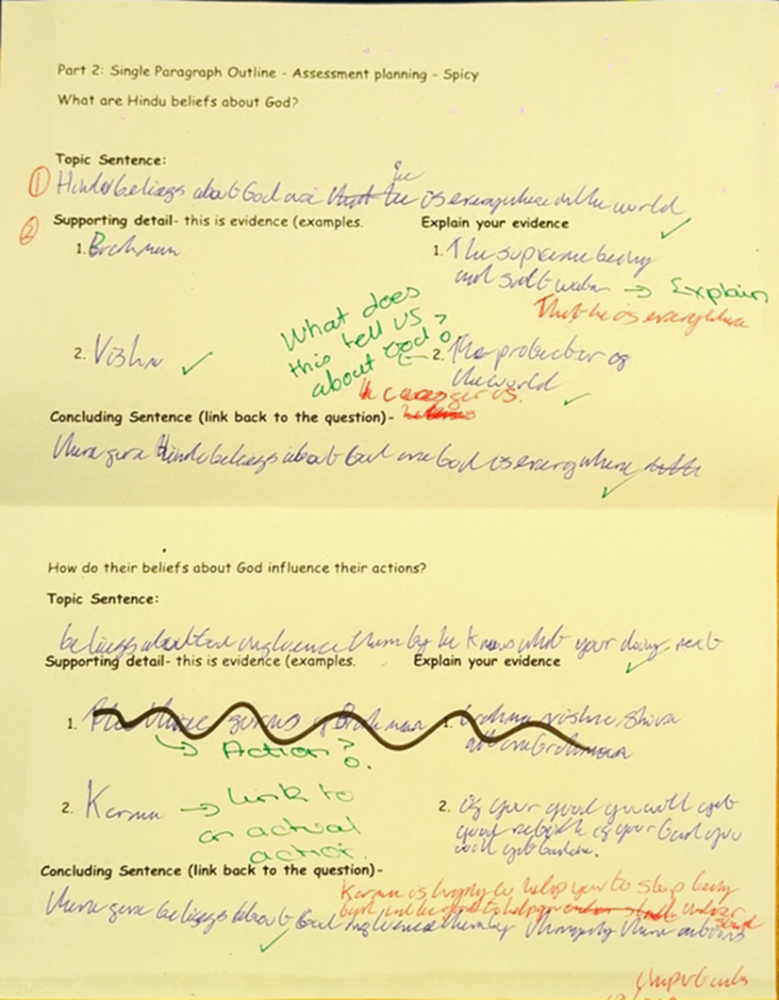 Part 2: Single Paragraph Outline - Assessment planning - Spicy
What are Hindu beliefs about God?
Topic Sentence:
he
① Hindu beliefs about God are that he is everywhere in the world
② Supporting detail- this is evidence (examples. Explain your evidence
1. Brahman 1. The supreme being
and salt water → Explain
That he is everywhere
What does
this tell us
about God?
2. Vishnu 2. The protector of
the world
He cares for us.
Concluding Sentence (link back to the question)-
Therefore Hindu beliefs about God are God is everywhere
How do their beliefs about God influence their actions?
Topic Sentence:
beliefs about God influence them by he knows what your doing next
Supporting detail- this is evidence (examples. Explain your evidence
1. The three forms of Brahman 1. Brahma, vishnu, Shiva
all are Brahman
→ Action?
2. Karma → Link to 2. if your good you will get
an actual good rebirth if your bad you
action. will get
Concluding Sentence (link back to the question)-
Karma is trying to help you to stop being
Therefore beliefs about God influence them by